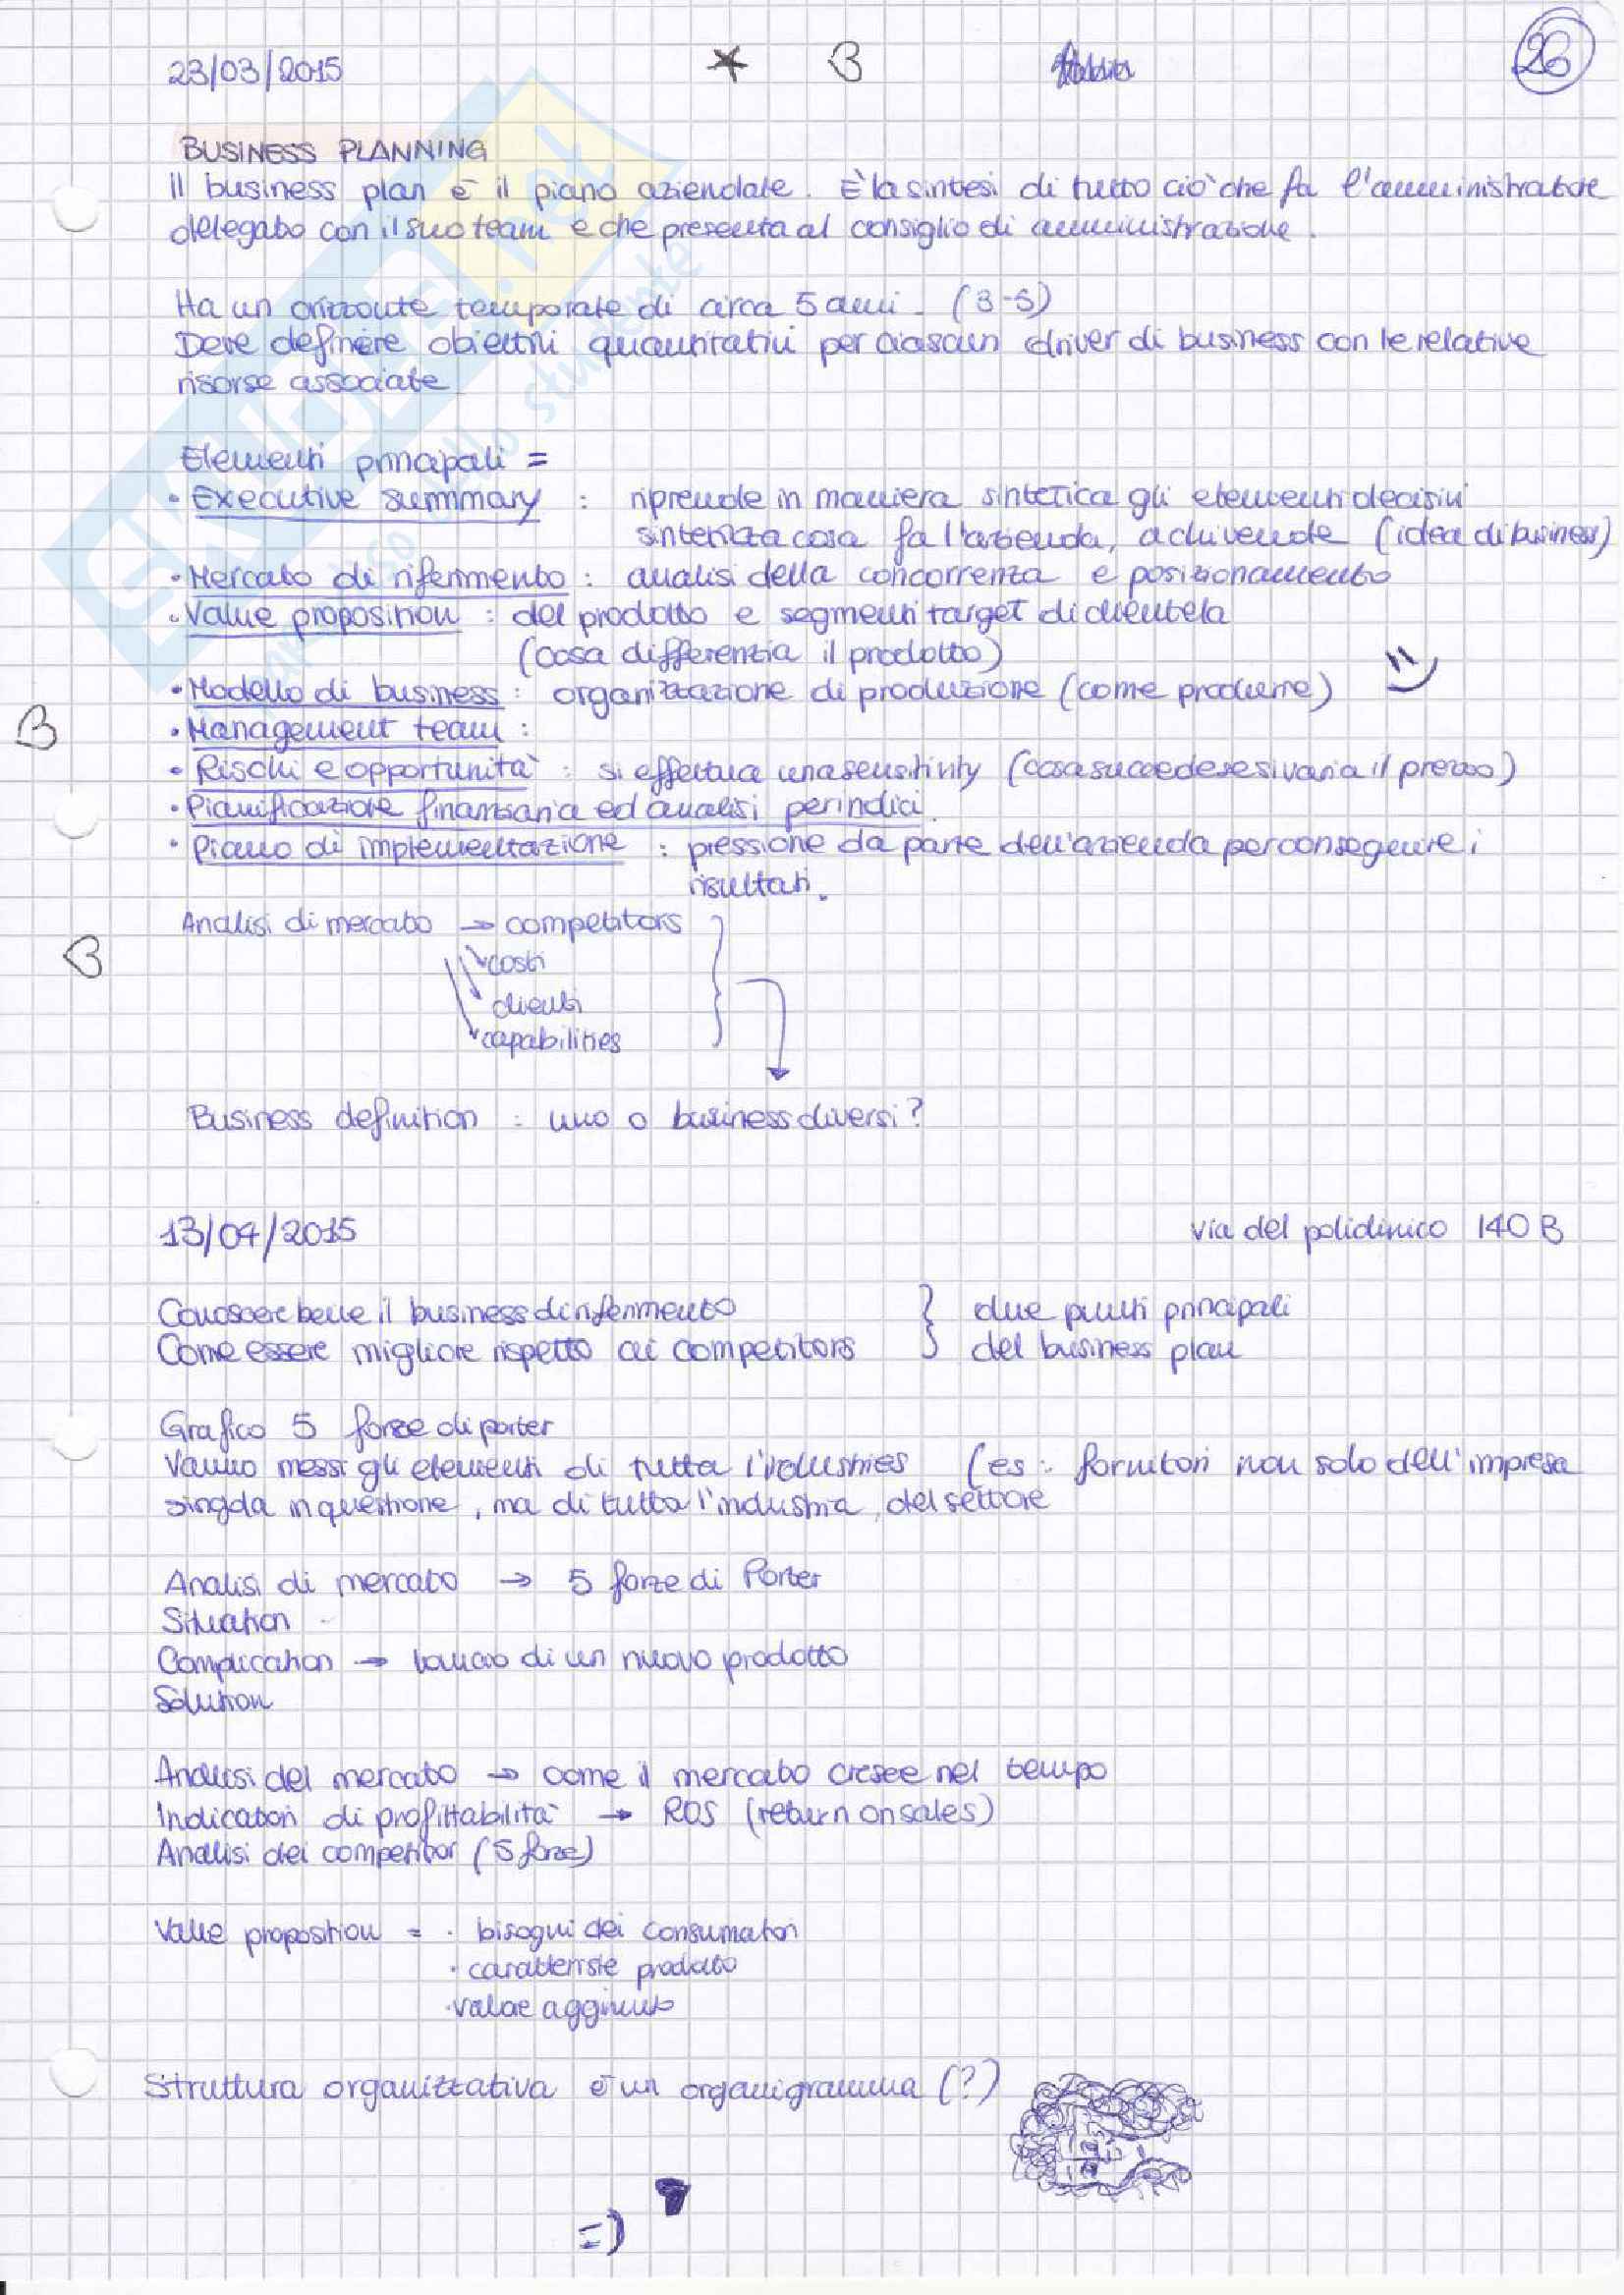 23/03/2015
26
BUSINESS PLANNING
Il business plan è il piano aziendale. È la sintesi di tutto ciò che fa l'amministratore
delegato con il suo team e che presenta al consiglio di amministrazione.
Ha un orizzonte temporale di circa 5 anni. (3-5)
Deve definire obiettivi quantitativi per ciascun driver di business con le relative
risorse associate
Elementi principali =
• Executive summary : riprende in maniera sintetica gli elementi decisivi
sintetizza cosa fa l'azienda, a chi vende (idea di business)
• Mercato di riferimento : analisi della concorrenza e posizionamento
• Value proposition : del prodotto e segmenti target di clientela
(cosa differenzia il prodotto)
• Modello di business : organizzazione di produzione (come produrre)
• Management team :
• Rischi e opportunità : si effettua una sensitivity (cosa succede se si varia il prezzo)
• Pianificazione finanziaria ed analisi per indici.
• Piano di implementazione : pressione da parte dell'azienda per conseguire i
risultati.
Analisi di mercato → competitors
costi
clienti
capabilities
Business definition : uno o business diversi?
13/04/2015 via del policlinico 140 B
Conoscere bene il business di riferimento } due punti principali
Come essere migliore rispetto ai competitors } del business plan
Grafico 5 forze di porter
Vanno messi gli elementi di tutta l'industries (es: fornitori non solo dell'impresa
singola in questione, ma di tutta l'industria, del settore
Analisi di mercato → 5 forze di Porter
Situation
Complication → lancio di un nuovo prodotto
Solution
Analisi del mercato → come il mercato cresce nel tempo
Indicatori di profittabilità → ROS (return on sales)
Analisi dei competitor (5 forze)
Value proposition = · bisogni dei consumatori
· caratteriste prodotto
· valore aggiunto
Struttura organizzativa è un organigramma (?)
=)